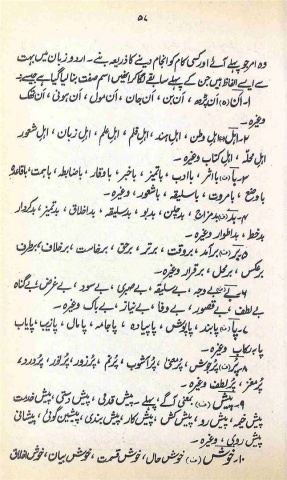 ۵۷
وہ امر جو پہلے آئے اور کسی کام کو انجام دینے کا ذریعہ بنے ۔ اردو زبان میں بہت
سے ایسے الفاظ ہیں جن کے پہلے سابقے لگا کر انھیں اسم صفت بنا لیا گیا ہے جیسے :۔
۱۔ اَن (ہ) ان پڑھ ، اَن بن ، اَن جان ، اَن مول ، اَن ہونی ، اَن تھک
وغیرہ ۔
۲۔ اہل ، اہلِ وطن ، اہلِ ہند ، اہلِ قلم ، اہلِ علم ، اہلِ زبان ، اہلِ شعور
اہلِ محلّہ ، اہلِ کتاب وغیرہ ۔
۳۔ با (ف) با اثر ، با ادب ، با تمیز ، باخبر ، باوقار ، باضابطہ ، باہمت ، باقاعدہ
باوضع ، بامروت ، باسلیقہ ، باشعور ، وغیرہ ۔
۴۔ بد (ف) بدمزاج ، بدچلن ، بدبو ، بدسلیقہ ، بداخلاق ، بدتمیز ، بدکردار
بدخط ، بداطوار وغیرہ ۔
۵۔ بر (ف) برآمد ، بروقت ، برتر ، برحق ، برخاست ، برخلاف ، برطرف
برعکس ، برمحل ، برقرار وغیرہ ۔
۶۔ بے (ف) بے وجہ ، بے سلیقہ ، بے صبری ، بے سود ، بے غرض ، بے گناہ
بے لطف ، بے قصور ، بے وفا ، بے نیاز ، بے باک وغیرہ ۔
۷۔ پا (ف) پابند ، پاپوش ، پاپیادہ ، پاجامہ ، پامال ، پازیب ، پایاب
پا برکاب وغیرہ ۔
۸۔ پُر (ف) پُرجوش ، پُرمعنی ، پُرآشوب ، پُرنم ، پُرزور ، پُرنور ، پُردرد ،
پُرمغز ، پُرلطف وغیرہ ۔
۹۔ پیش (ف) بمعنی آگے ، پہلے ۔ پیش قدمی ، پیش دستی ، پیش خدمت
پیش خیمہ ، پیش رو ، پیش کش ، پیش کار ، پیش بندی ، پیشین گوئی ، پیشانی
پیش روی ، وغیرہ ۔
۱۰۔ خوش (ف) خوش حال ، خوش قسمت ، خوش بیان ، خوش اخلاق